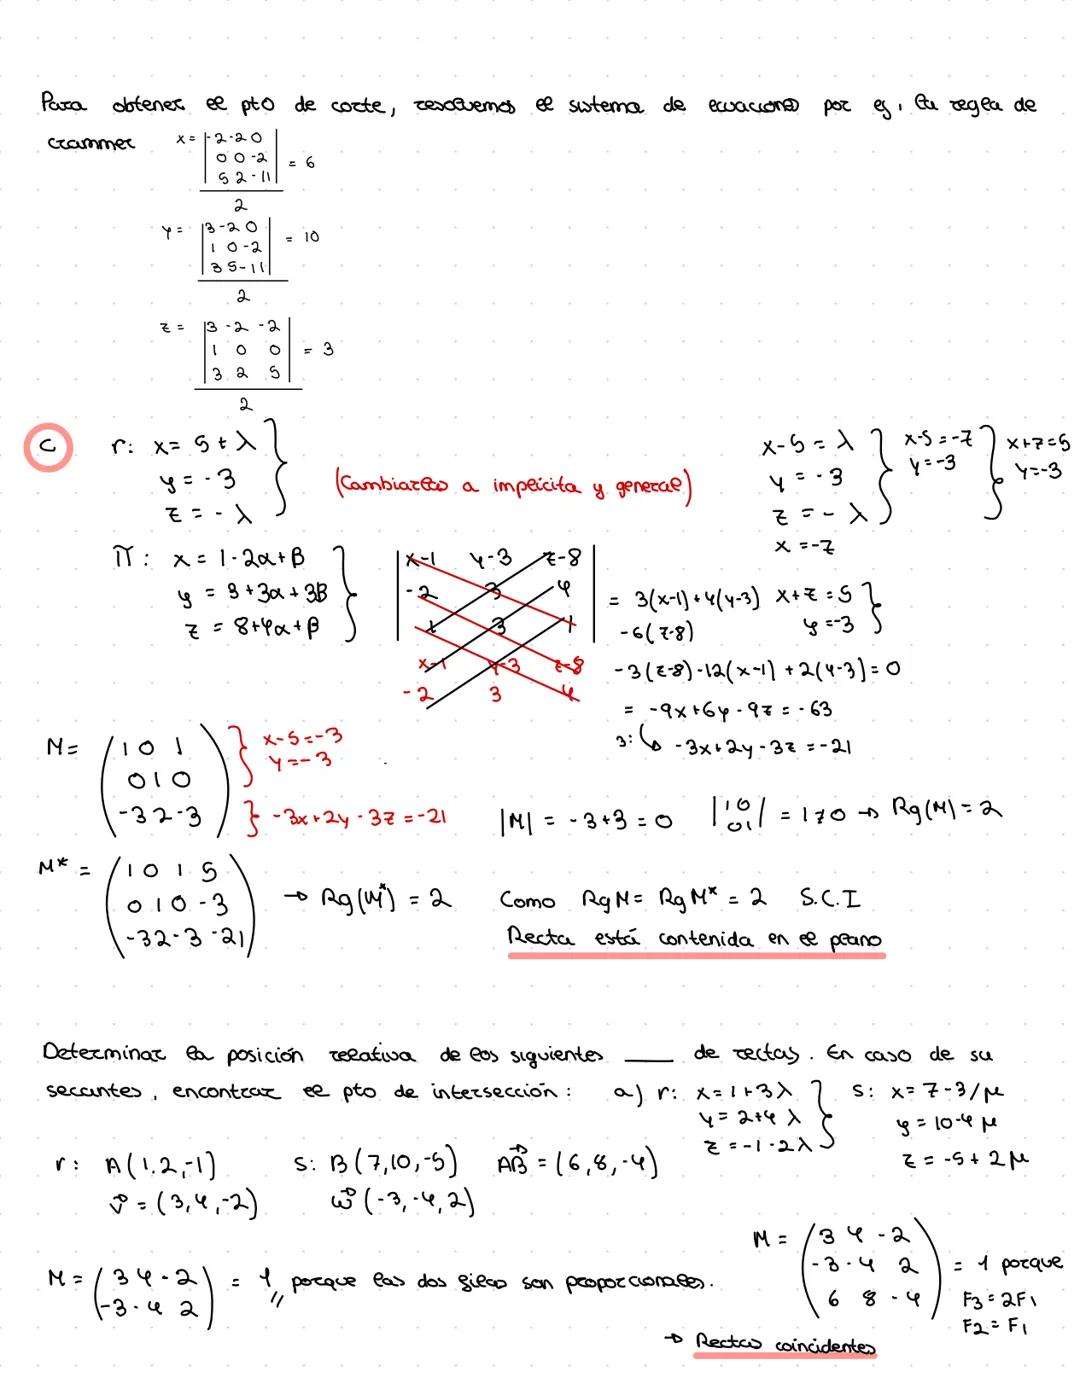 Para obtener el pto de corte, resolvemos el sistema de ecuaciones por ej, la regla de
crammer
x = |-2 -2 0
0 0 -2
5 2 -11| = 6
2
y = |3 -2 0
1 0 -2
3 5 -11| = 10
2
z = |3 -2 -2
1 0 0
3 2 5| = 3
2
C
r: x = 5 + λ
y = -3
z = -λ
(Cambiarlo a implícita y general)
x-5 = λ
y = -3
z = -λ
x = -z
x-5 = -z
y = -3
x+z=5
y=-3
π: x = 1-2α+β
y = 3+3α+3β
z = 8+4α+β
|x-1 y-3 z-8
-2 3 4
1 3 1|
x-1 y-3 z-8
-2 3 4
= 3(x-1)+4(y-3)
-6(z-8)
x+z=5
y=-3
-3(z-8)-12(x-1)+2(y-3)=0
= -9x+6y-9z = -63
3: ↳ -3x+2y-3z = -21
M = (1 0 1
0 1 0
-3 2 -3)
x-5=-3
y=-3
-3x+2y-3z=-21
|M| = -3+3=0
|1 0
0 1| = 1≠0 → Rg(M)=2
M* = (1 0 1 5
0 1 0 -3
-3 2 -3 -21)
→ Rg(M*) = 2
Como RgM = RgM* = 2 S.C.I
Recta está contenida en el plano
Determinar la posición relativa de los siguientes ____ de rectas. En caso de su
secantes, encontrar el pto de intersección: a) r: x=1+3λ
y=2+4λ
z=-1-2λ
s: x=7-3/μ
y=10-4μ
z=-5+2μ
r: A(1,2,-1) s: B(7,10,-5) AB=(6,8,-4)
v=(3,4,-2) w(-3,-4,2)
M = (3 4 -2
-3 -4 2) = 1 porque las dos filas son proporcionales.
M = (3 4 -2
-3 -4 2
6 8 -4) = 1 porque
F3=2F1
F2=F1
→ Rectas coincidentes